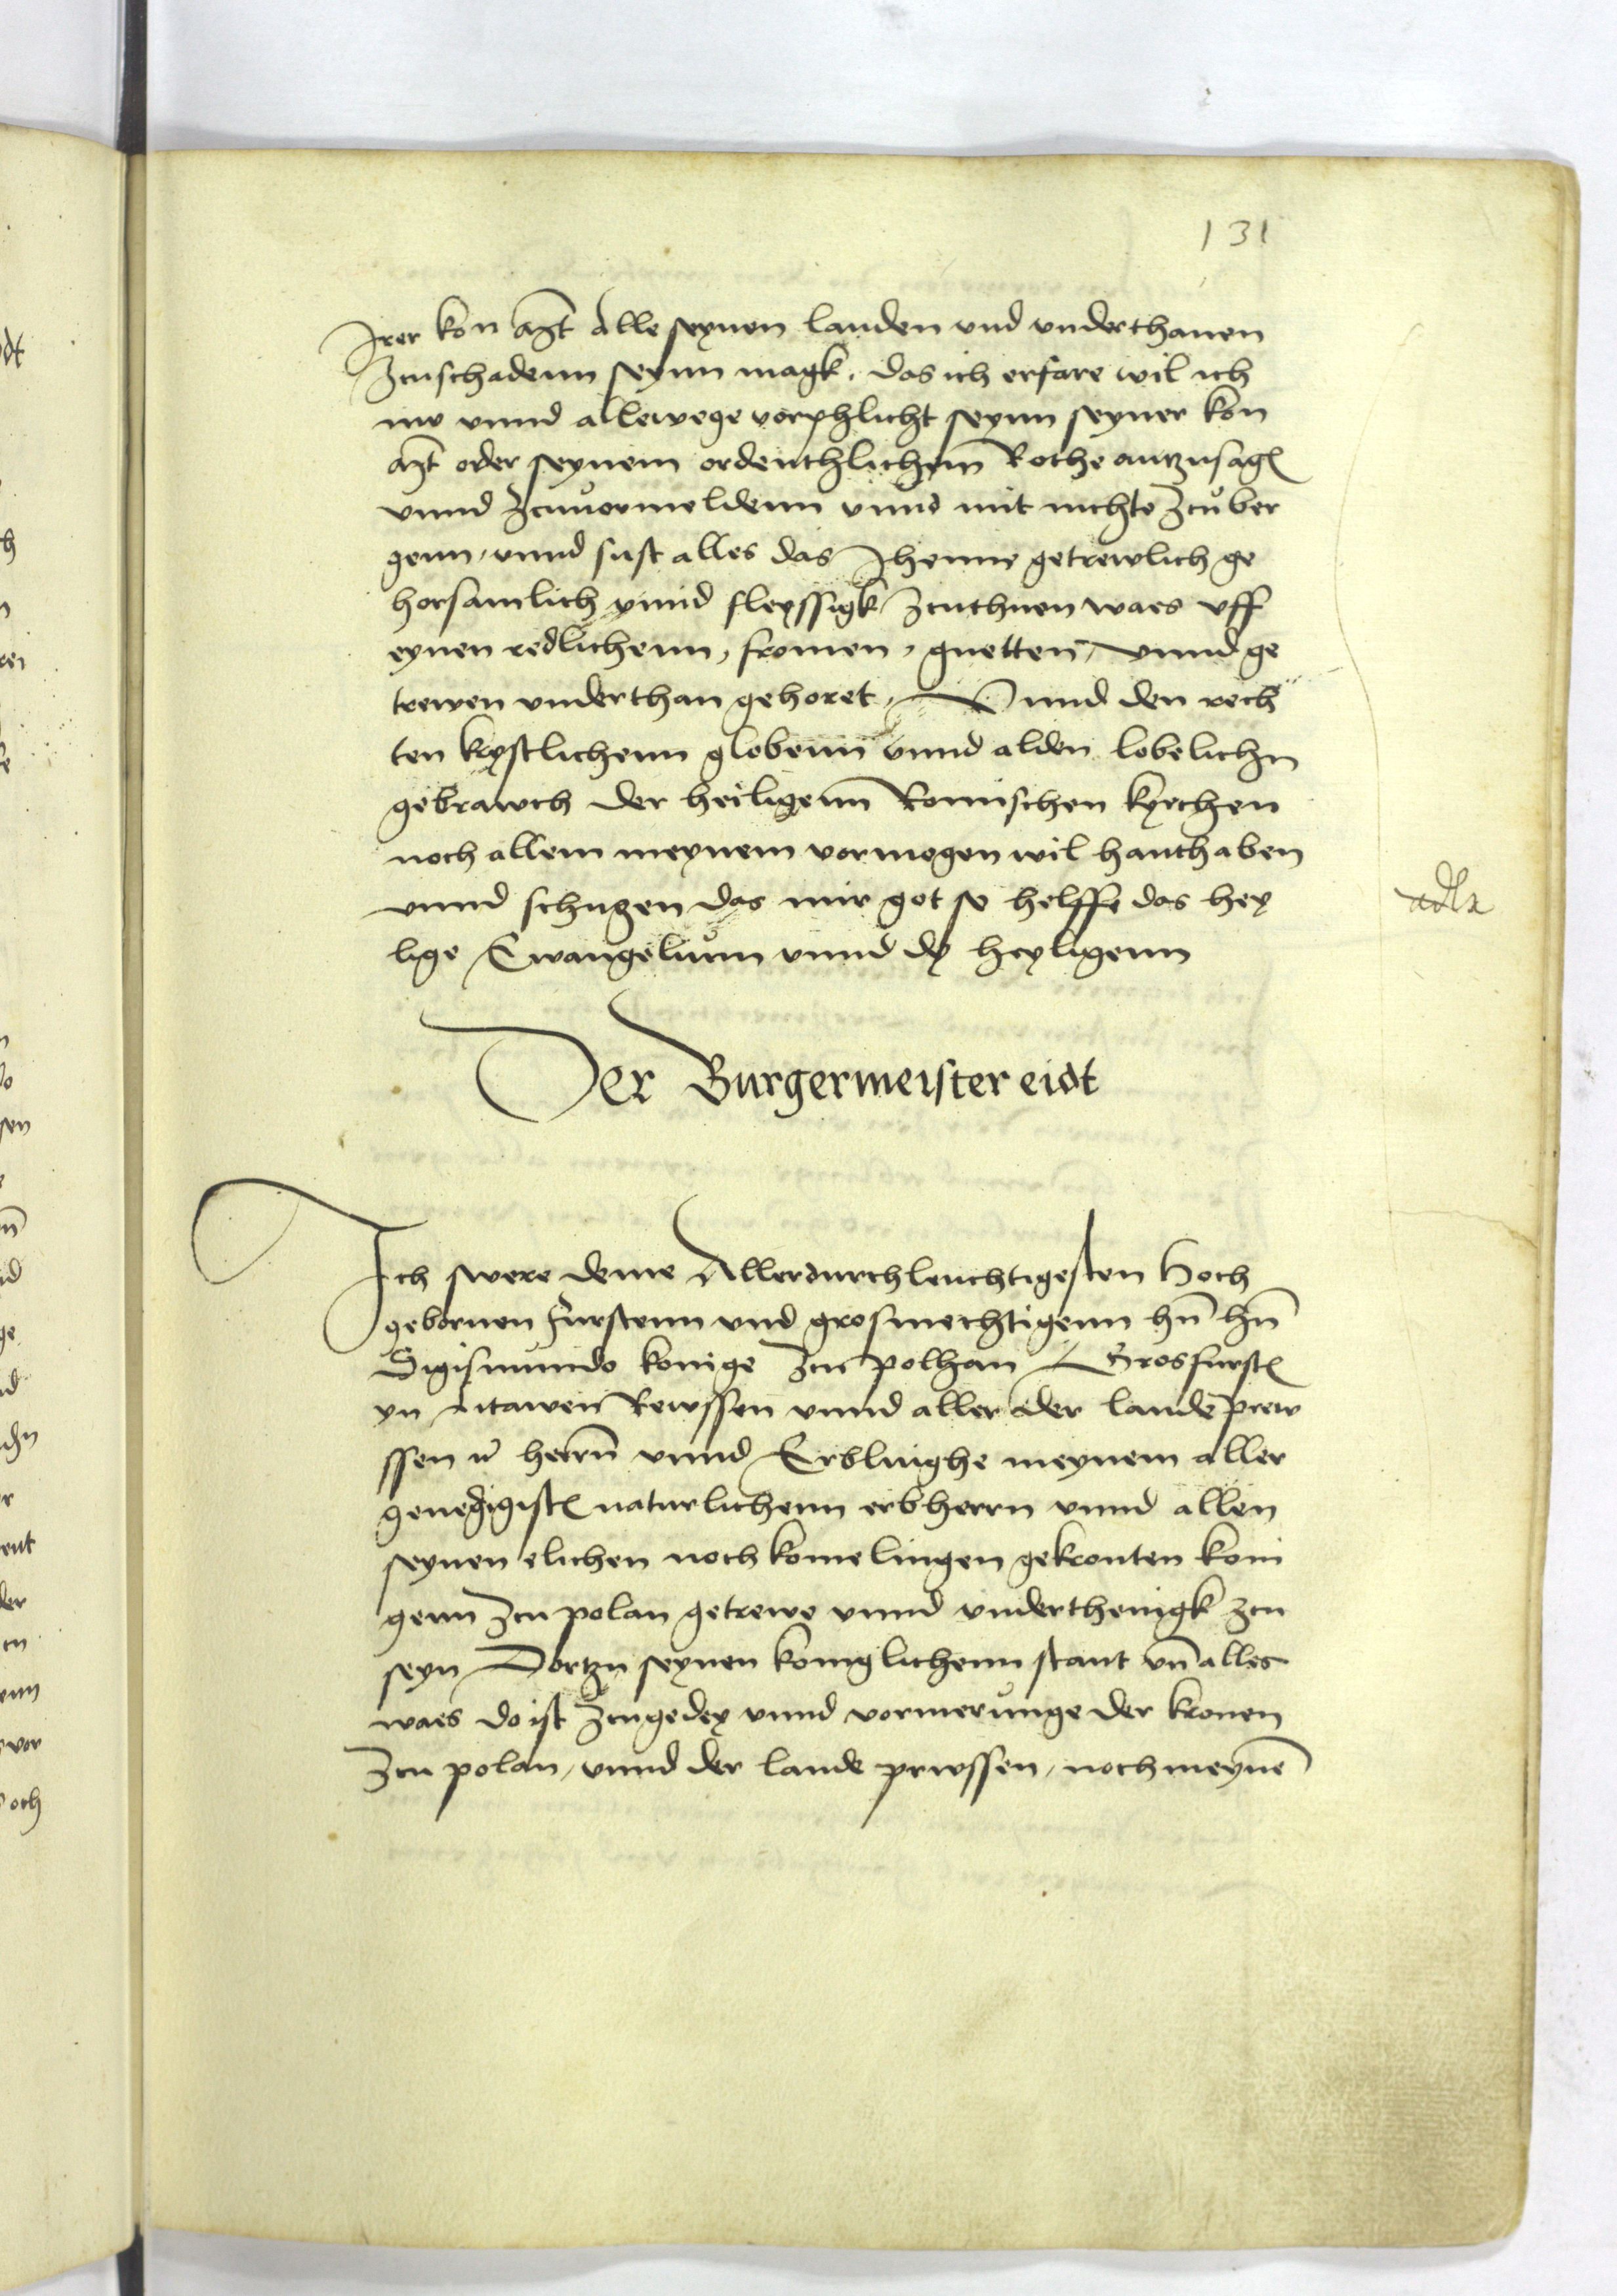 131
Irer kon Mat Alle seynen landen vnd vnderthanen
Zcuschadenn seynn magk. das ich erfare wil ich
nw vnnd allewege vorphlicht seynn seyner kon
Mat oder seynem ordenthlichem Rothe antzusagen
vnnd Zcuuormeldenn vnnd mit nichte Zcuber
genn, vnnd sust alles das Ihenne getrewlich ge
horsamlich vnnd fleyssigk Zcuthuen waes vff
eynen redlichenn, fromen, guetten, vnnd ge
trewen vnderthan gehoret, Vnnd den rech
ten krystlichenn globenn vnnd alden lobelichn
gebrawch der heiligenn Romischen kyrchen
noch allem meynem vormogen wil hanthaben
vnnd schutzen das mir got so helffe das hey
lige Ewangelium vnnd dy heyligenn
Der Burgermeister eidt
Ich swere deme Allerdurchleuchtigesten Hoch
gebornen furstenn vnd grosmechtigenn hn̄ hn̄
Sigismundo konige Zcu polhan Grosfursten
yn Litawen Rewssen vnnd aller der lande prew
ssen herrn̄ vnnd Erblinghe meynem aller
genedigisten naturlichenn erbherrn vnnd allen
seynen elichen noch komelingen gekronten koni
genn Zcu polan getrewe vnnd vnderthenigk zcu
seyn Dortzu seynen koniglichenn stant vn̄ alles
waes do ist Zcugedey vnnd vormerunge der kronen
Zcu polan, vnnd der lande prwssen, noch meynē